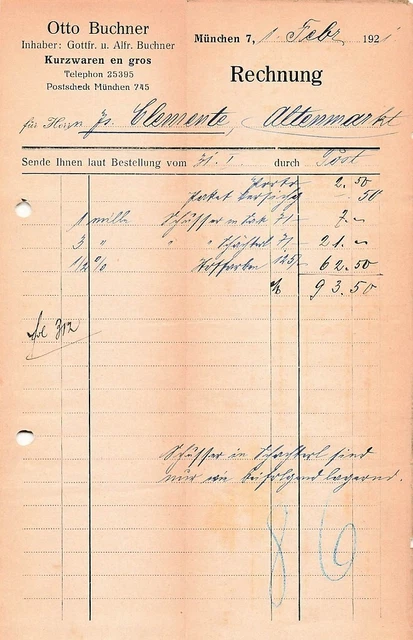 Otto Buchner
Inhaber: Gottfr. u. Alfr. Buchner
Kurzwaren en gros
Telephon 25395
Postscheck München 745
München 7, 1. Febr. 1921
Rechnung
für Herrn Js. Clemente, Altenmarkt
Sende Ihnen laut Bestellung vom 31. I. durch Post
Porto 2.50
Paket 50
1 mille Schusser m. 7/- 7.-
3 " " " Schachterl 7/- 21.-
1/2 % 125/- 62.50
93.50
312
Schusser in Schachterl sind
nur wie beifolgend lagernd.
86